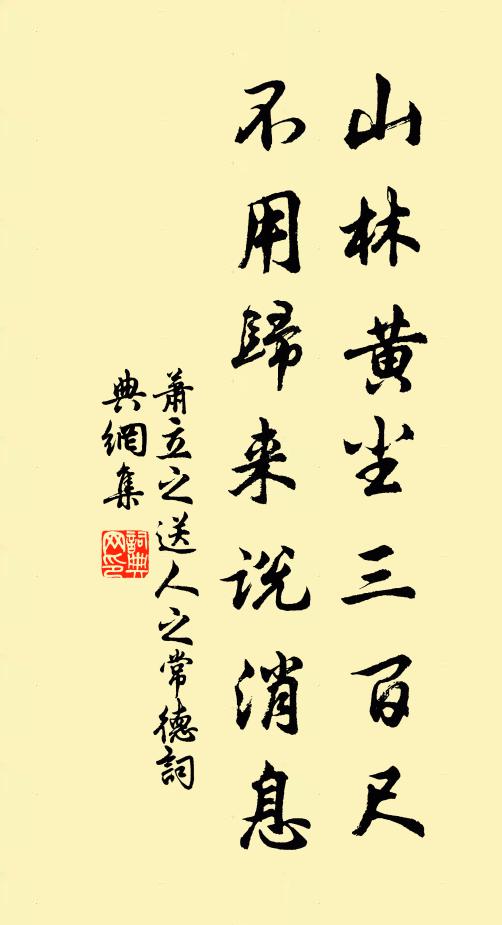 山林黄尘三百尺
不用歸来说消息
萧立之送人之常德詞
典網集
詞典
网印